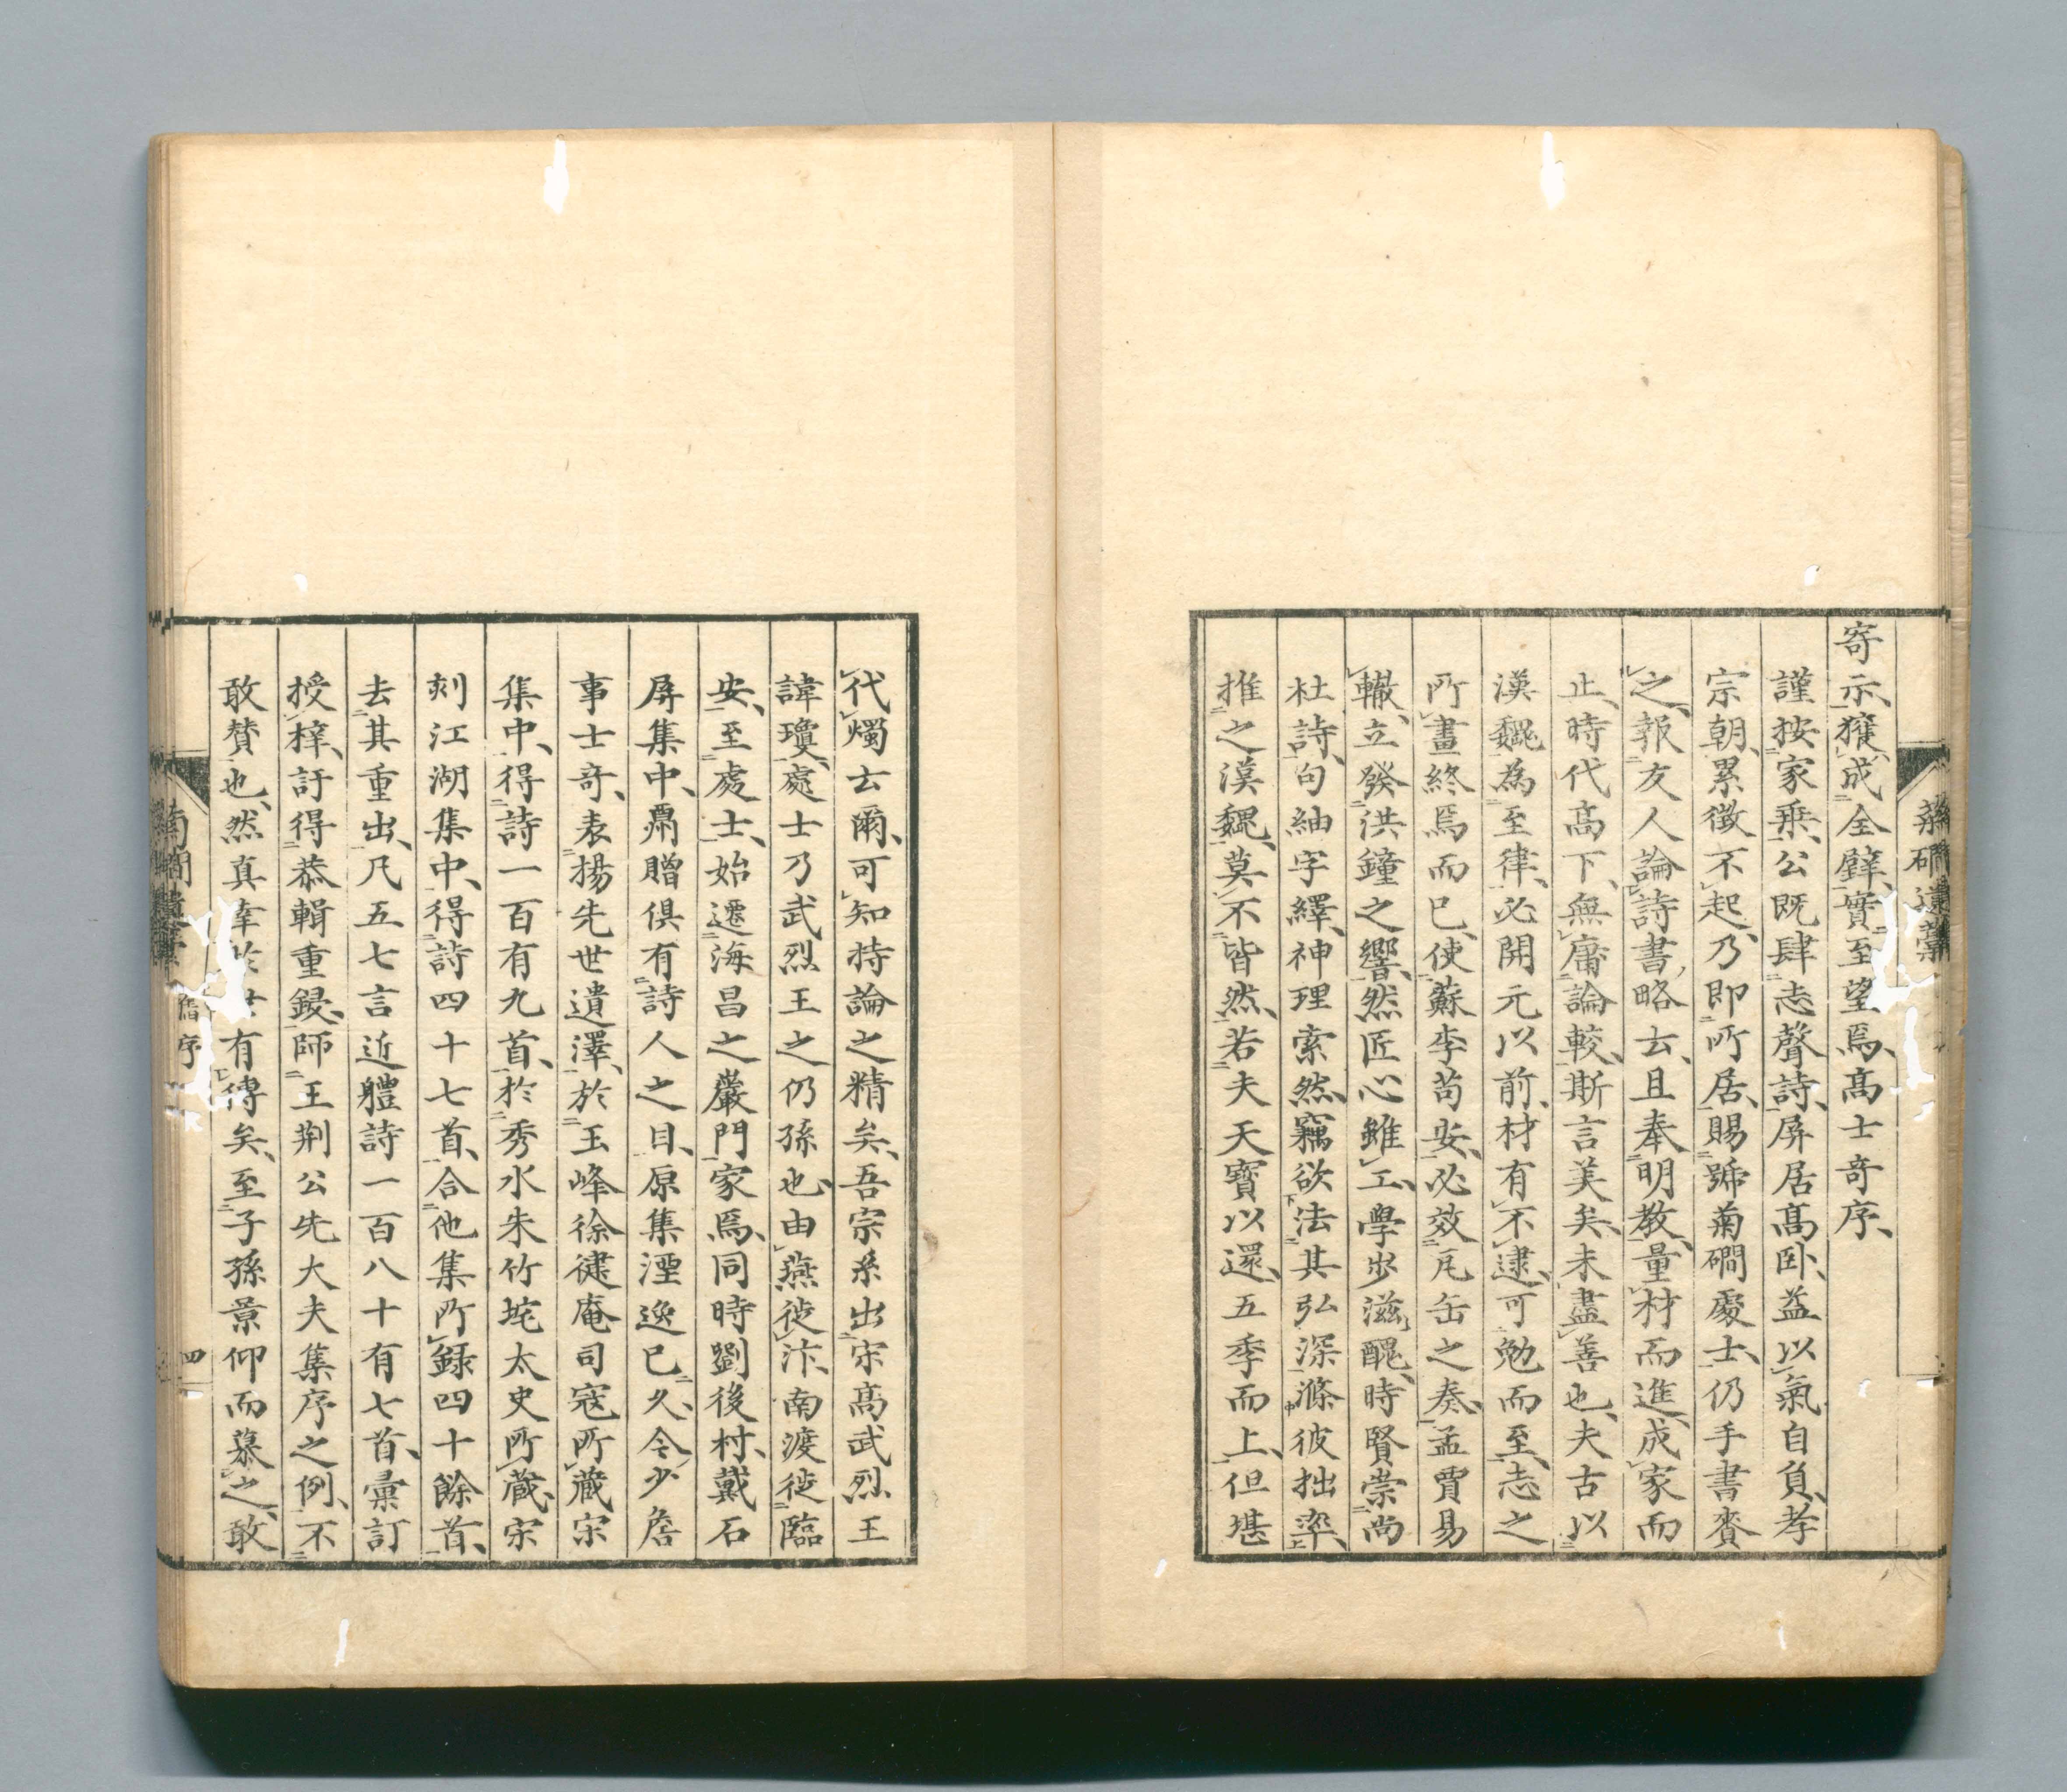 菊磵遺稾
寄示獲成全璧實至望焉高士竒序
謹按家乗公既肆志聲詩屏居髙卧益以氣自負孝
宗朝累徵不起乃即所居賜號菊磵處士仍手書賚
之報友人論詩書略云且奉明教量材而進成家而
止時代高下無庸論較斯言美矣未盡善也夫古以
漢魏為至律必開元以前材有不逮可勉而至志之
所畫終焉而已使蘇李苟安必效瓦缶之奏孟賈易
轍立發洪鐘之響然匠心雖工學步滋醜時賢崇尚
杜詩句紬字繹神理索然竊欲法其弘深滌彼拙率
推之漢魏莫不皆然若夫天寶以還五季而上但堪
代燭云爾可知持論之精矣吾宗系出宋髙武烈王
諱瓊處士乃武烈王之仍孫也由燕徙汴南渡徙臨
安至處士始遷海昌之巖門家焉同時劉後村戴石
屏集中鬲贈俱有詩人之目原集湮逸已久今少詹
事士竒表揚先世遺澤於玉峰徐健庵司寇所藏宋
集中得詩一百有九首於秀水朱竹垞太史所蔵宋
刻江湖集中得詩四十七首合他集所録四十餘首
去其重出凡五七言近軆詩一百八十有七首彚訂
授梓訏得恭輯重鋟師王荆公先大夫集序之例不
敢賛也然真幸於世有傳矣至子孫景仰而慕之敢
菊磵遺稾 舊序 四